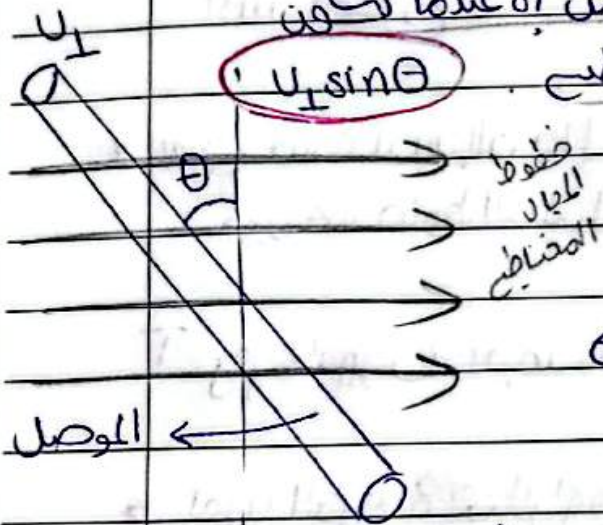 U⊥
U⊥ sinθ
θ
خطوط
المجال
المغناطيسي
الموصل